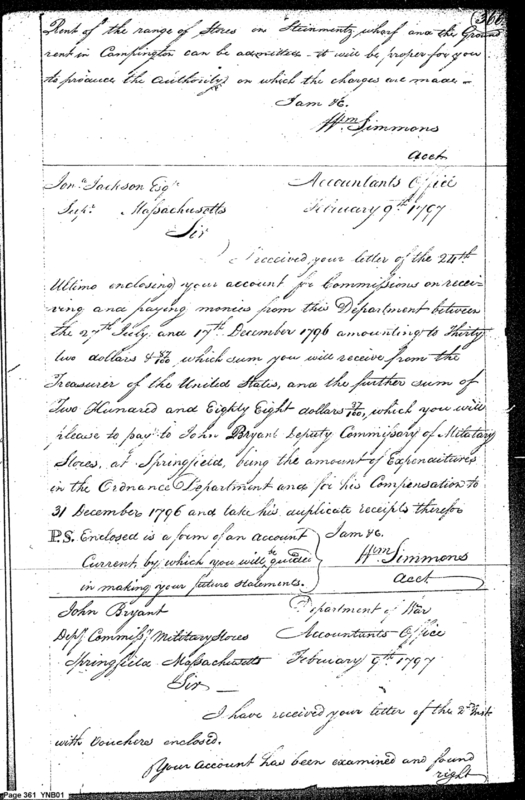 366
Rent of the range of Stores on Steinmentz wharf and the Ground
rent in Campington can be admitted - it will be proper for you
to produce the authority on which the charges are made -
I am &c.
Wm Simmons
acct
Jon.ª Jackson Esqr Accountants Office
Supr. Massachusetts February 9th 1797
Sir
I received your letter of the 24th
Ultimo enclosing your account for Commissions on recei-
ving and paying monies from this Department between
the 27th July and 17th December 1796 amounting to Thirty
two dollars & 87/100 which sum you will receive from the
Treasurer of the United States, and the further sum of
Two Hundred and Eighty Eight dollars 37/100, which you will
please to pay to John Bryant Deputy Commissary of Military
Stores, at Springfield, being the amount of Expenditures
in the Ordnance Department and for his Compensation to
31 December 1796 and take his duplicate receipts therefor
P.S. Enclosed is a form of an account I am &c.
Current, by which you will be guided Wm Simmons
in making your future statements. acct
John Bryant Department of War
Depy Commissy Military Stores Accountants Office
Springfield Massachusetts February 9th 1797
Sir -
I have received your letter of the 2nd Inst.
with Vouchers enclosed.
Your account has been examined and found
right
Page 361 YNB01